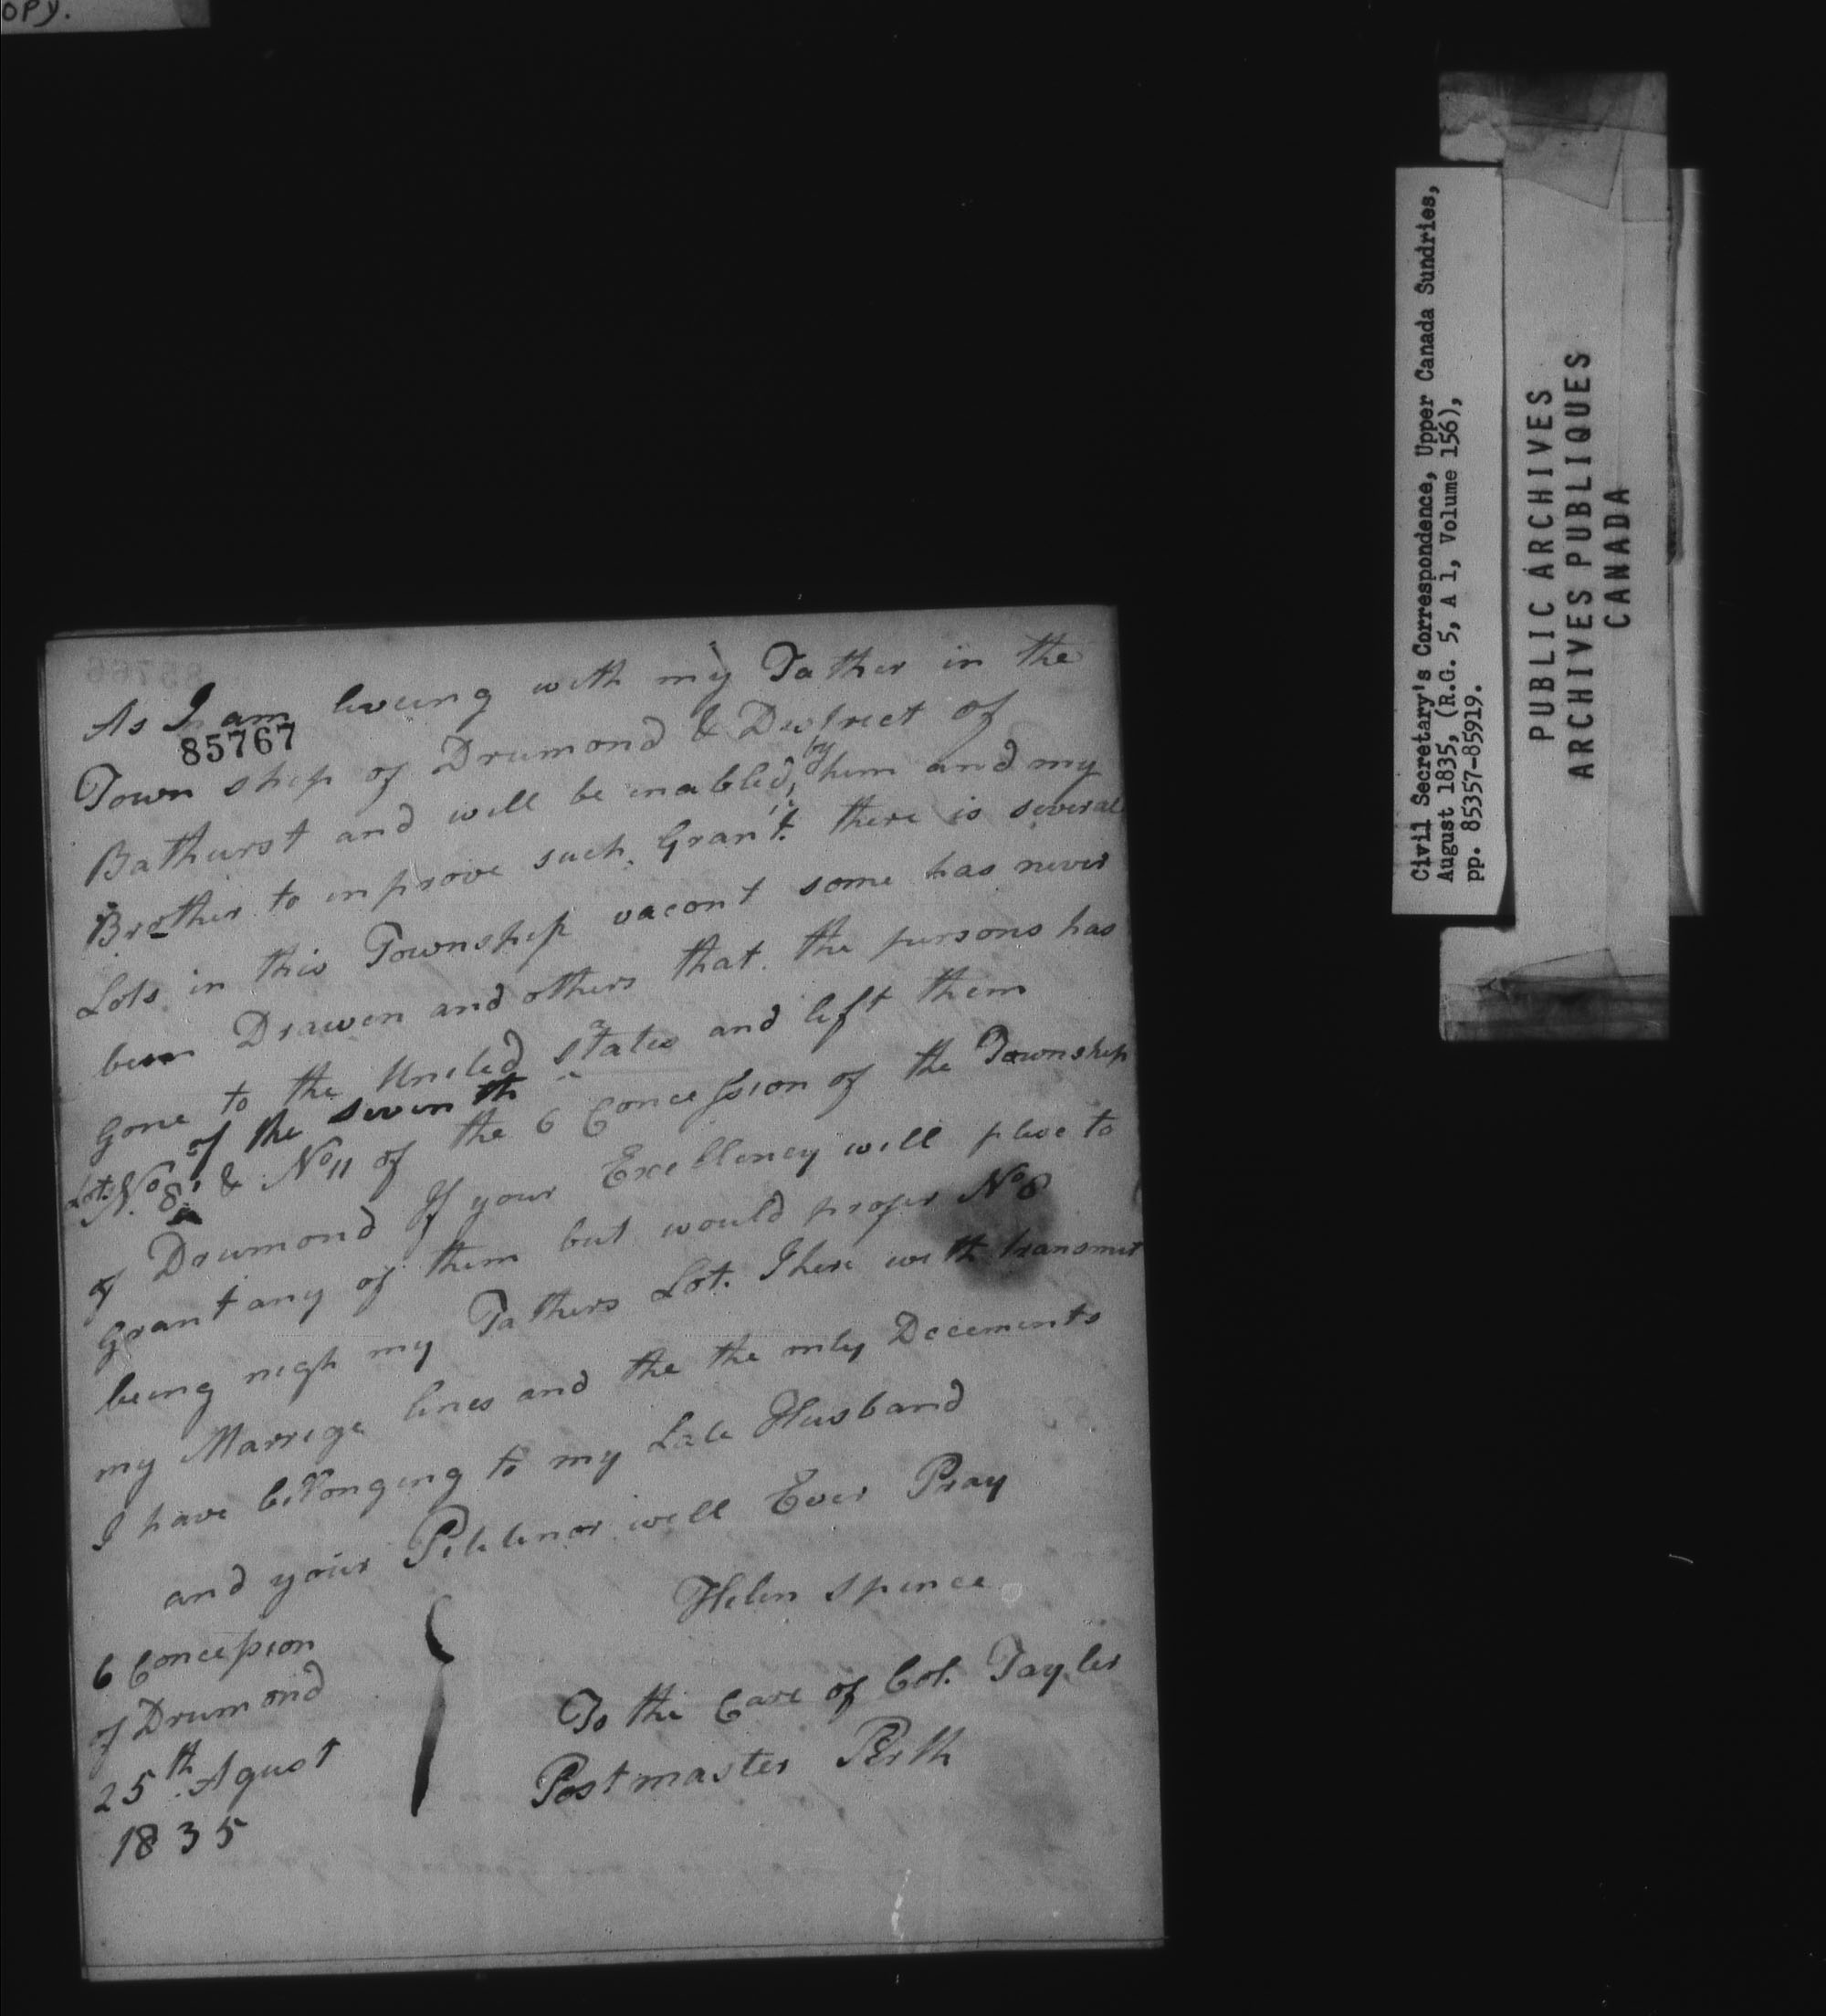 opy.
As I am liveing with my Father in the
85767
Town ship of Drumond & District of
Bathurst and will be inabled, by him and my
Brother to improve such Grant. there is several
Lots in this Township vacont some has never
been Drawen and others that the persons has
gone to the United states and left them
of the seventh
Lot. No. 8, & No 11 of the 6 Concession of the Township
of Drumond If your Excellency will plese to
grant any of them but would profer No 8
being nigh my Fathers Lot. I here with transmit
my Marrige lines and the the only Docements
I have bellonging to my Late Husband
and your Petitinor will Ever Pray
Helen Spence
6 Concession
of Drumond
25th Agust
1835
To the Care of Col. Tayler
Postmaster Perth
Civil Secretary's Correspondence, Upper Canada Sundries,
August 1835, (R.G. 5, A 1, Volume 156),
pp. 85357-85919.
PUBLIC ARCHIVES
ARCHIVES PUBLIQUES
CANADA